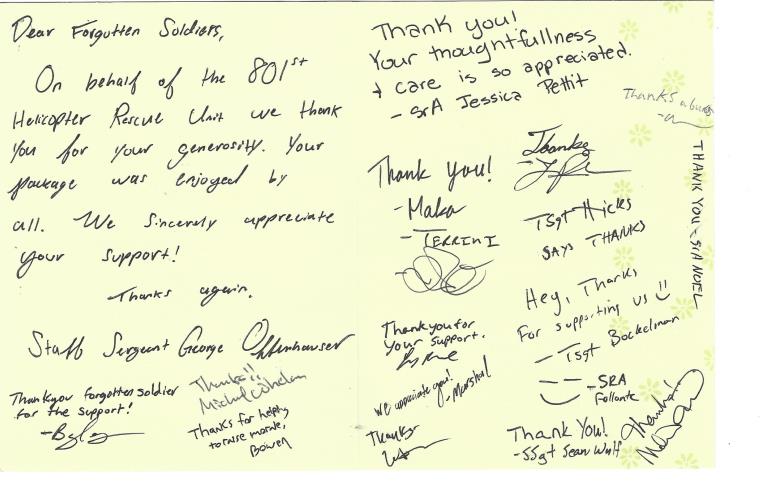 Dear Forgotten Soldiers,
On behalf of the 801st
Helicopter Rescue Unit we thank
you for your generosity. Your
package was enjoyed by
all. We sincerely appreciate
your support!
Thanks again.
Staff Sergeant George
Thankyou forgotten soldier
for the support!
Thanks!!
Thanks for helping
to raise morale,
Bowen
Thank you!
Your thoughtfullness
+ care is so appreciated.
- SrA Jessica Pettit
Thanks a bunch
Thank you!
- Maka
- TERRINI
Thanks
TSgt Hicks
SAYS THANKS
THANK YOU - SrA NOEL
Hey, Thanks
For supporting us
- Tsgt Bockelman
- SRA
Follante
Thankyou for
your support.
We appreciate you!
- Marshal
Thanks
Thank You!
- SSgt Sean Wulf
Thanks!